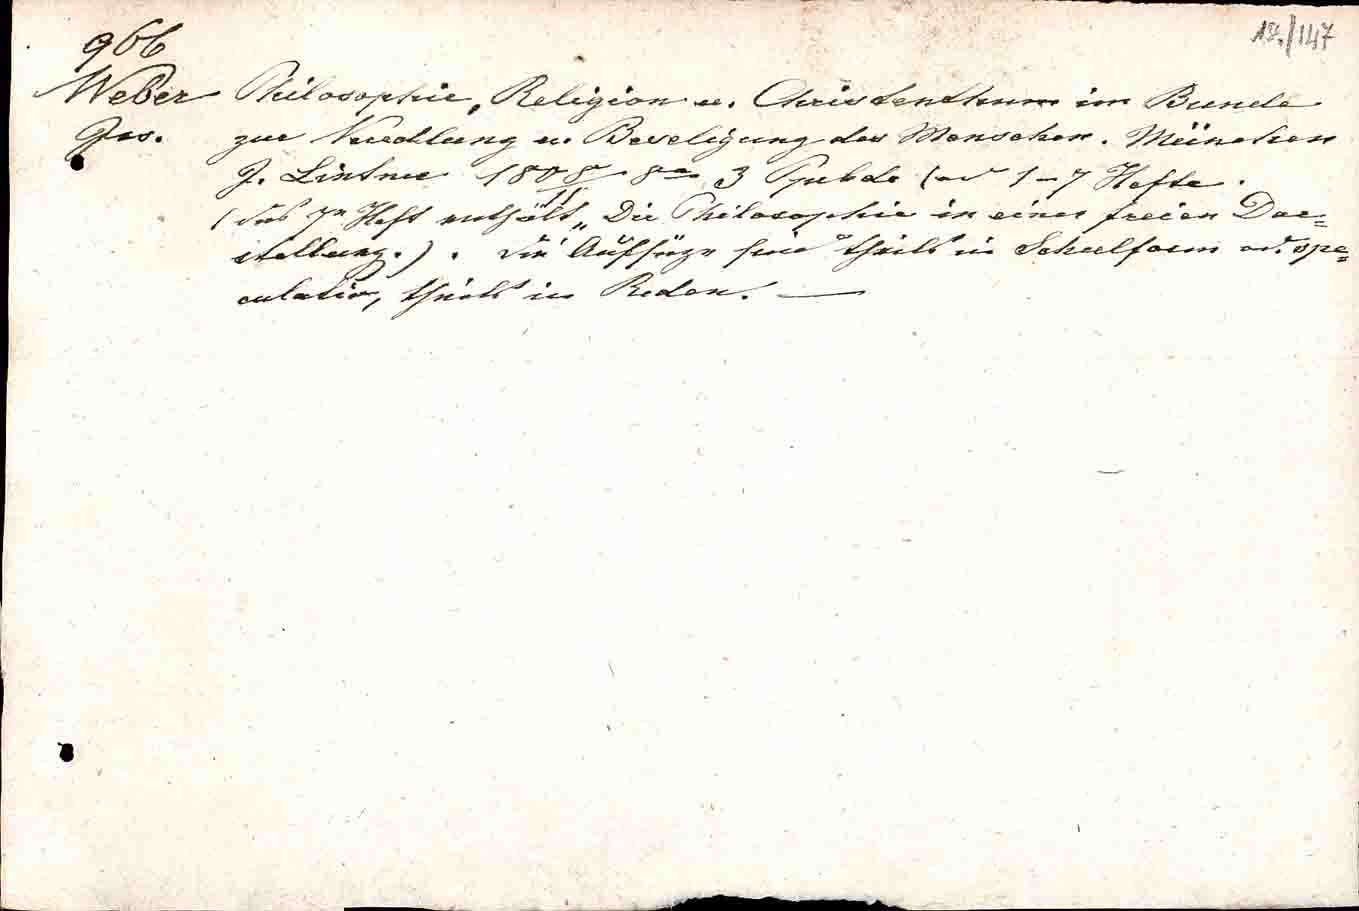 966
12./147
Weber Philosophie, Religion u. Christenthum im Bunde
Jos. zur Veredlung u. Beseligung des Menschen. München
J. Lintner 1808/11 8o 3 (od 1–7 Hefte.
(das 7te Heft enthält „Die Philosophie in einer freien Dar=
stellung.). Die Aufsäze sind theils in Schulform od. spe=
culativ, theils in Reden. —